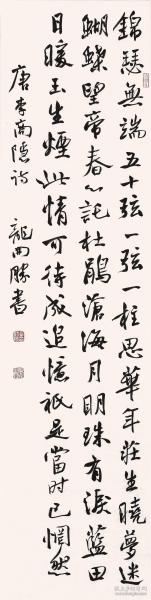 錦瑟無端五十弦一弦一柱思華年莊生曉夢迷
蝴蝶望帝春心託杜鵑滄海月明珠有淚藍田
日暖玉生煙此情可待成追憶祇是當时已惘然
唐李商隱詩 龍開勝書